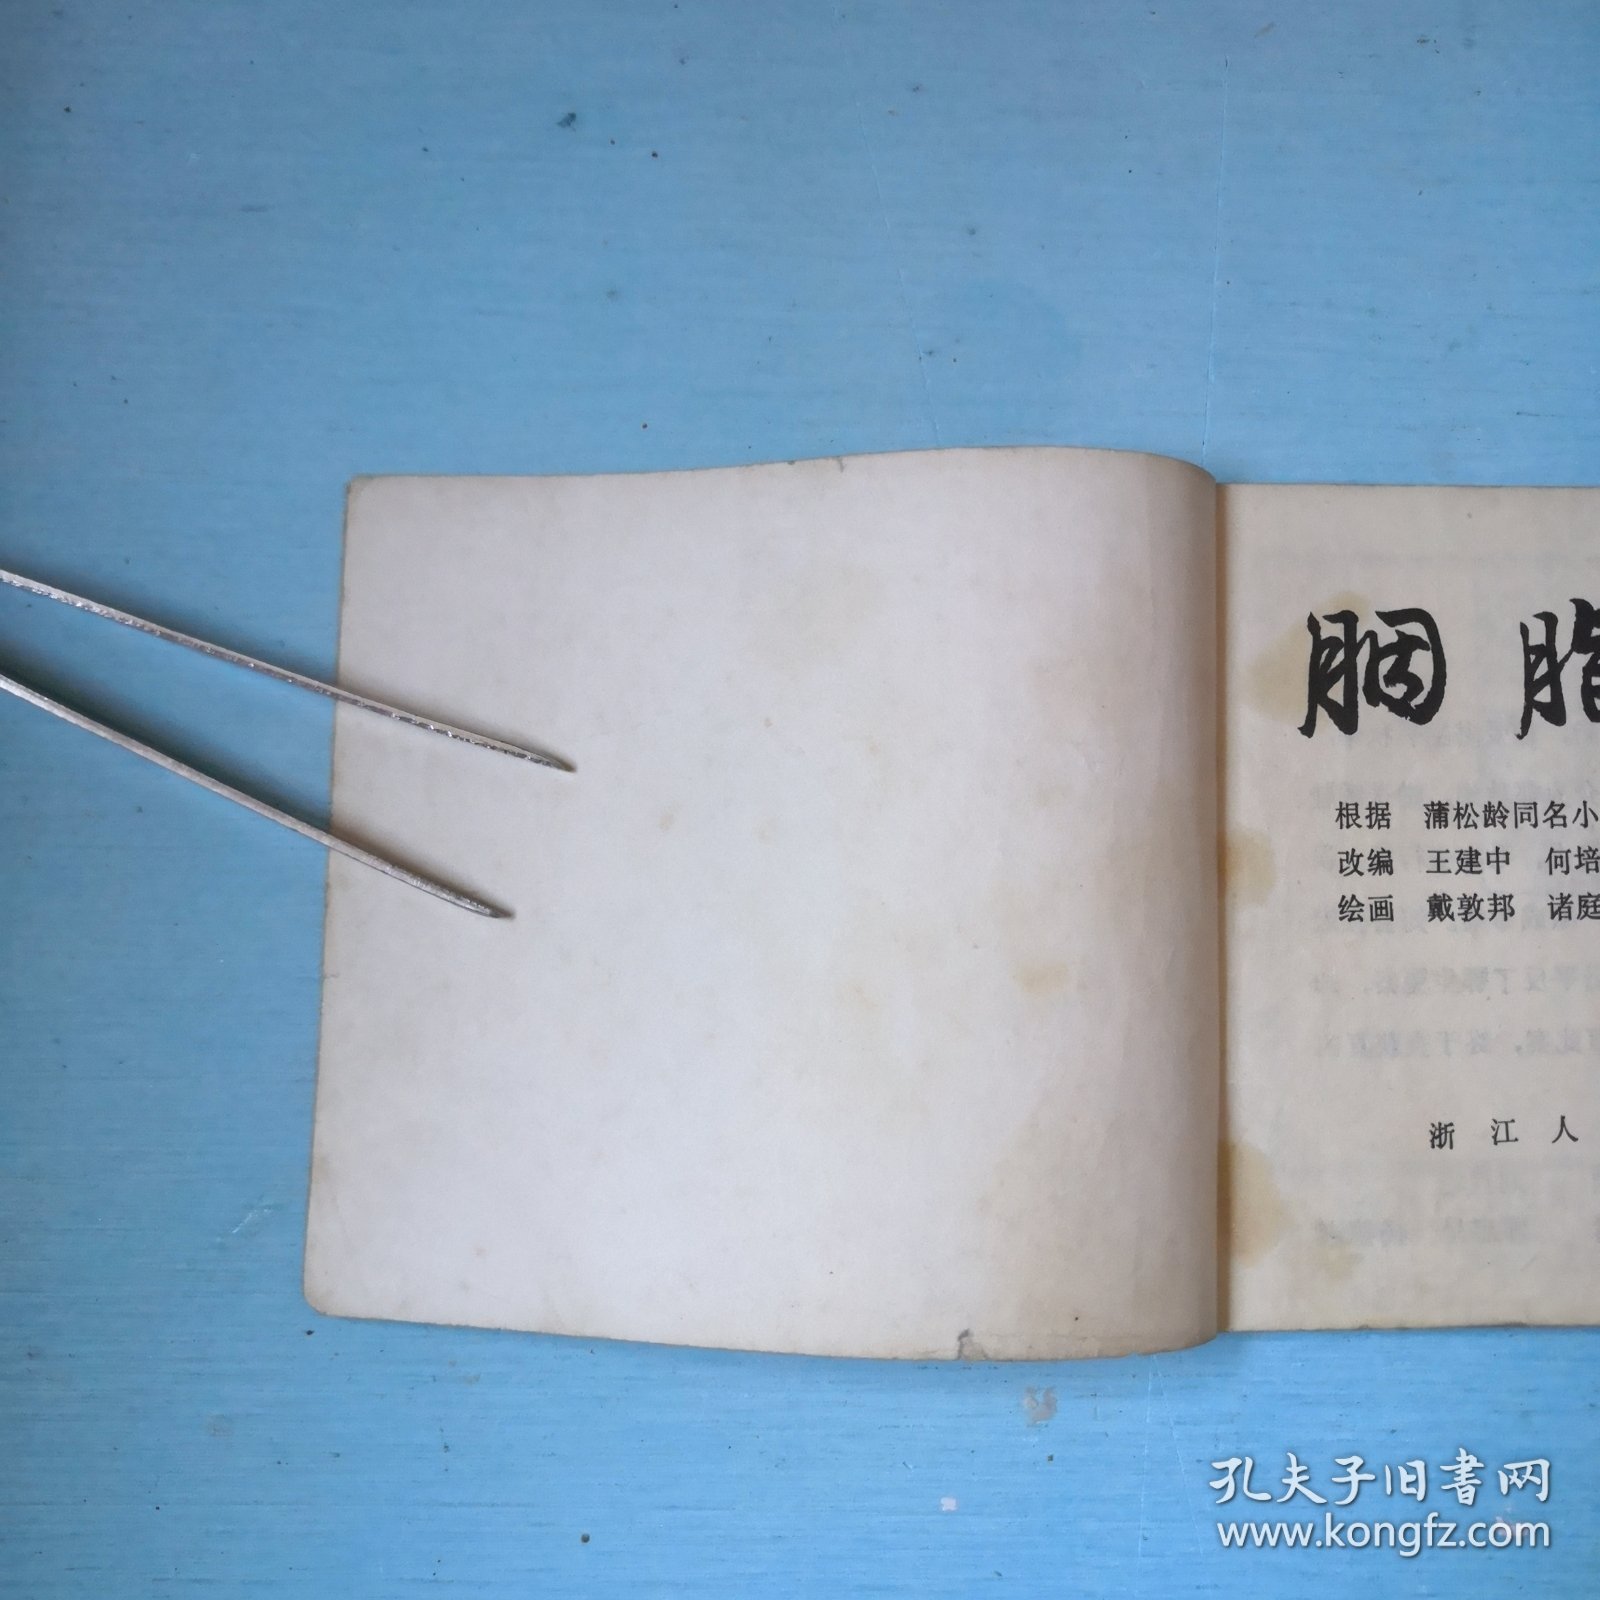 胭脂
根据 蒲松龄同名小
改编 王建中 何培
绘画 戴敦邦 诸庭
浙江人
孔夫子旧书网
www.kongfz.com